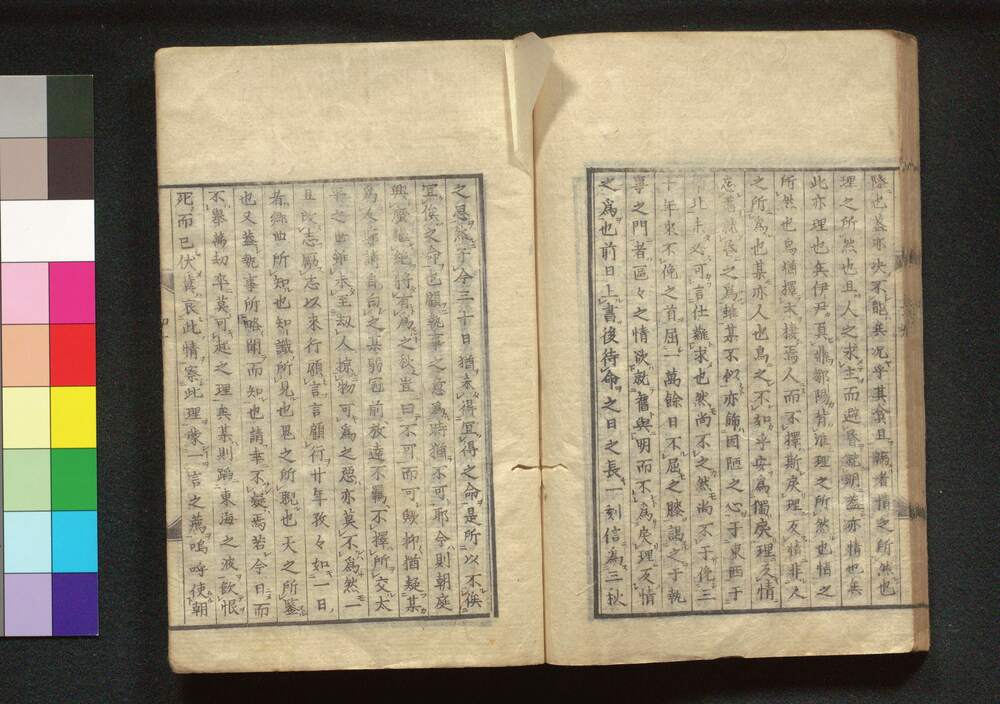 陸也蓋亦決不能矣況乎其貪且躁者情之所然也
理之所然也且人之求主而避暴就明蓋亦情也矣
此亦理也矣伊尹頁鼎鄒陽皆惟理之所然也情之
所然也鳥猶擇木棲焉人而不擇斯戾理反情非人
之所為也某亦人也鳥之不如乎安為獨戾理反情
之為雖某不似亦飾固陋之心于東西于
北未必可言仕難求也然尚不之然尚不于俛三
十年來不俛之首屈一萬餘日不屈之膝謁之于執
事之門者區々之情欲就舊與明而不為戾理反情
之為也前日上書後待命之日之長一刻信為三秋
之思于今三十日猶未得冝得之命是所以不俟
冝俟之命也顧執事之意為時猶不可耶今則朝庭
興廢繼絕將有為之秋豈曰不可而可歟抑猶疑某
為人請自白之某弱冠前放達不羈不擇所交太
平之世雖未至劫人掠物可為之惡亦莫不為然一
旦改志勵志以來行顧言言顧行廿年孜々如一日
者所知也知識所見也鬼之所聰也天之所鑒
也又蓋執事所略聞而知也請幸不疑焉若今日而
不舉萬劫率莫可起之理矣某則蹈東海之波飲恨
死而已伏冀哀此情察此理蒙一言之薦嗚呼使朝